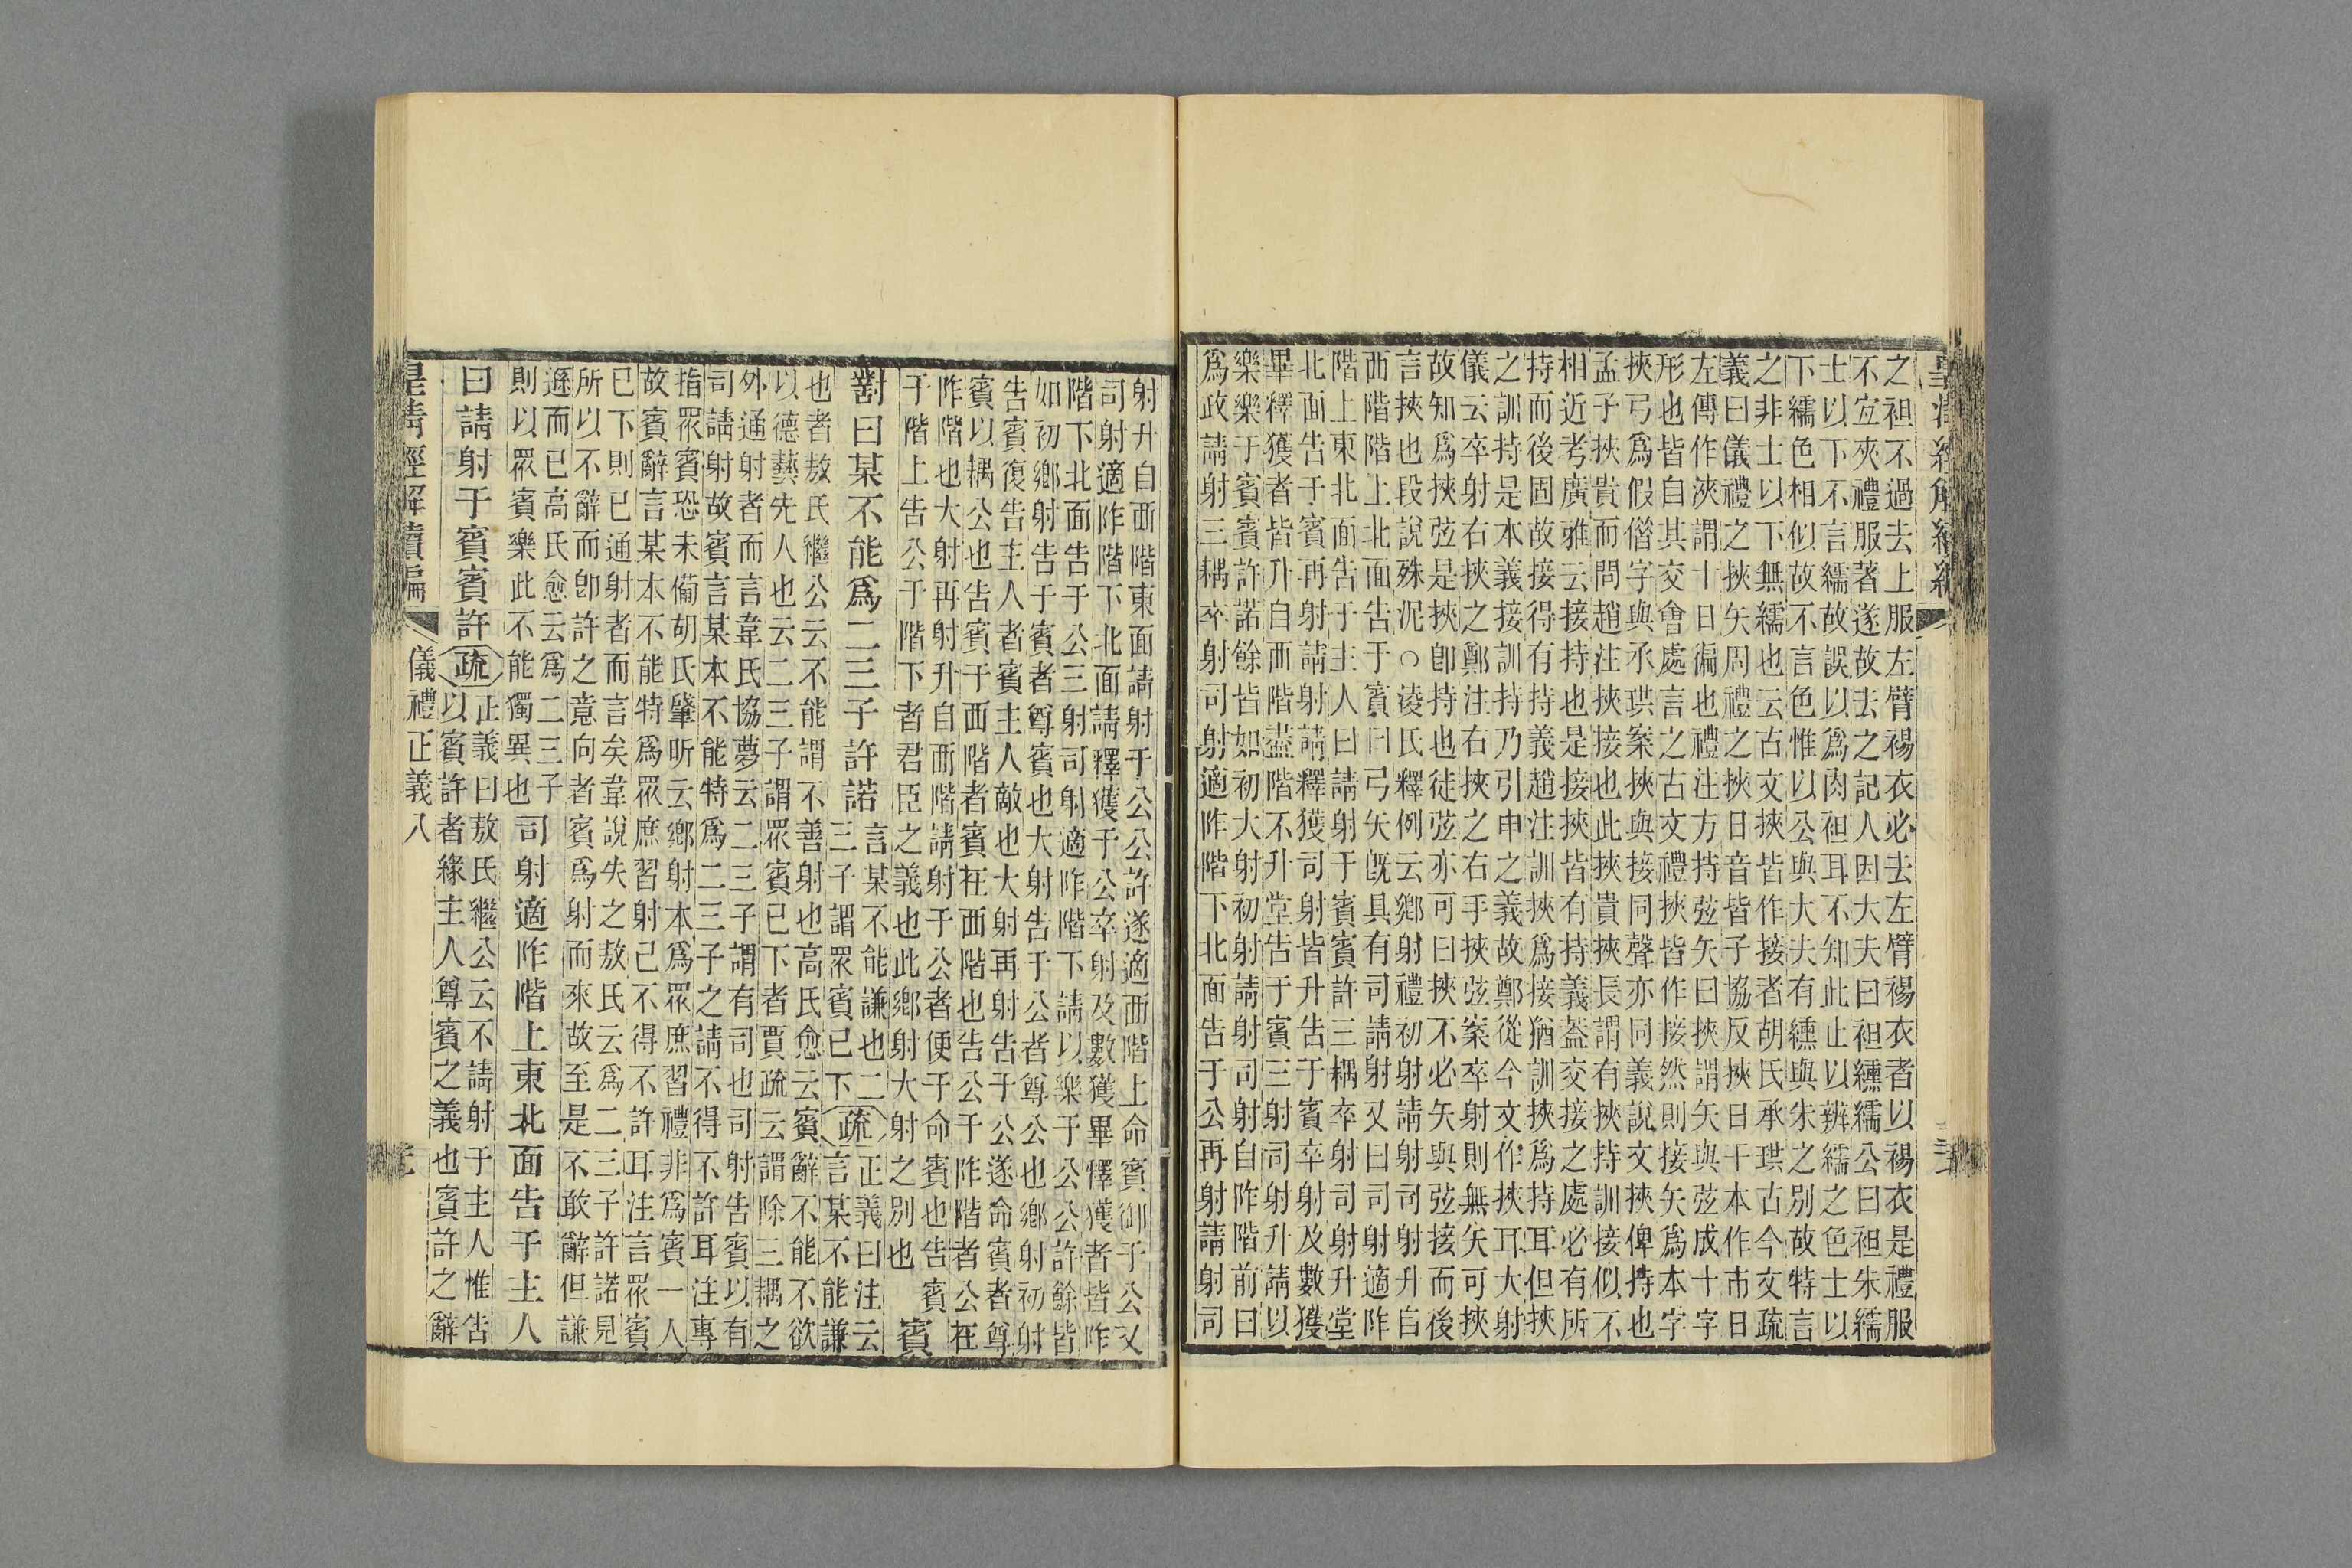 皇清經解續編
之袒不過去上服左臂裼衣必去左臂裼衣者以裼衣是禮服
不宜夾禮服著遂故去之記人因大夫曰袒纁襦公曰袒朱襦
士以下不言襦故誤以爲肉袒耳不知此止以辨襦之色士以
下襦色相似故不言色惟以公與大夫有纁與朱之別故特言
之非士以下無襦也云古文挾皆作接者胡氏承珙古今文疏
義曰儀禮之挾矢周禮之挾日音皆子協反挾日干本作帀日
左傳作浹謂十日徧也禮注方持弦矢曰挾謂矢與弦成十字
形也皆自其交會處言之古文禮挾皆作接然則接矢爲本字
挾弓爲假偕字與承珙案挾與接同聲亦同義說文挾俾持也
孟子挾貴而問趙注挾接也此挾貴挾長謂有挾持訓接似不
相近考廣雅云接持也是接挾皆有持義葢交接之處必有所
持而後固故接得有持義趙注訓挾爲接猶訓挾爲持耳但挾
之訓持是本義接訓持乃引申之義故鄭從今文作挾耳大射
儀云卒射右挾之鄭注右挾之右手挾弦案卒射則無矢可挾
故知爲挾弦是挾卽持也徒弦亦可曰挾不必矢與弦接而後
言挾也段說殊泥○淩氏釋例云鄉射禮初射請射司射升自
西階階上北面告于賓曰弓矢旣具有司請射又曰司射適阼
階上東北面告于主人曰請射于賓賓許三耦卒射司射升堂
北面告于賓再射請射請釋獲司射皆升告于賓卒射及數獲
畢釋獲者皆升自西階盡階不升堂告于賓三射司射升請以
樂樂于賓賓許諾餘皆如初大射初射請射司射自阼階前曰
爲政請射三耦卒射司射適阼階下北面告于公再射請射司
射升自西階東面請射于公公許遂適西階上命賓御于公又
司射適阼階下北面請釋獲于公卒射及數獲畢釋獲者皆阼
階下北面告于公三射司射適阼階下請以樂于公公許餘皆
如初鄉射告于賓者尊賓也大射告于公者尊公也鄉射初射
告賓復告主人者賓主人敵也大射再射告于公遂命賓者尊
賓以耦公也告賓于西階者賓在西階也告公于阼階者公在
阼階也大射再射升自西階請射于公者便于命賓也告賓
于階上告公于階下者君臣之義也此鄉射大射之別也 賓
對曰某不能爲二三子許諾言某不能謙也二
三子謂眾賓已下疏正義曰注云
言某不能謙
也者敖氏繼公云不能謂不善射也高氏愈云賓辭不能不欲
以德藝先人也云二三子謂眾賓已下者賈疏云謂除三耦之
外通射者而言韋氏協夢云二三子謂有司也司射告賓以有
司請射故賓言某本不能特爲二三子之請不得不許耳注專
指眾賓恐未備胡氏肇昕云鄉射本爲眾庶習禮非爲賓一人
故賓辭言某本不能特爲眾庶習射己不得不許耳注言眾賓
已下則已通射者而言矣韋說失之敖氏云爲二三子許諾見
所以不辭而卽許之意向者賓爲射而來故至是不敢辭但謙
遜而已高氏愈云爲二三子
則以眾賓樂此不能獨異也 司射適阼階上東北面告于主人
曰請射于賓賓許疏正義曰敖氏繼公云不請射于主人惟告
以賓許者緣主人尊賓之義也賓許之辭
皇清經解續編
儀禮正義八